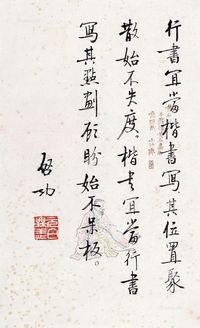 行書宜當楷書寫其位置聚
散始不失度楷書宜當行書
寫其點劃顧盼始不呆板
啓功